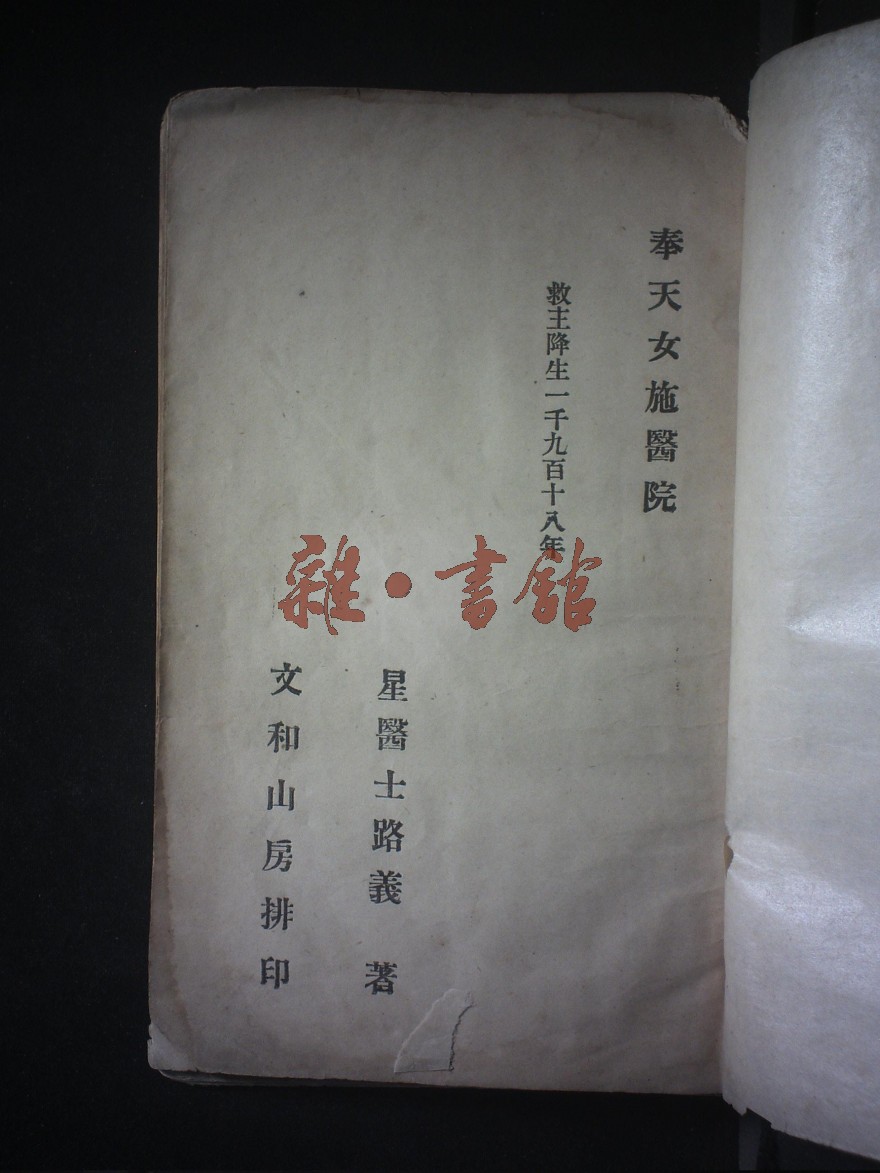 奉天女施醫院
救主降生一千九百十八年
星醫士路義 著
文和山房排印
雜·書館